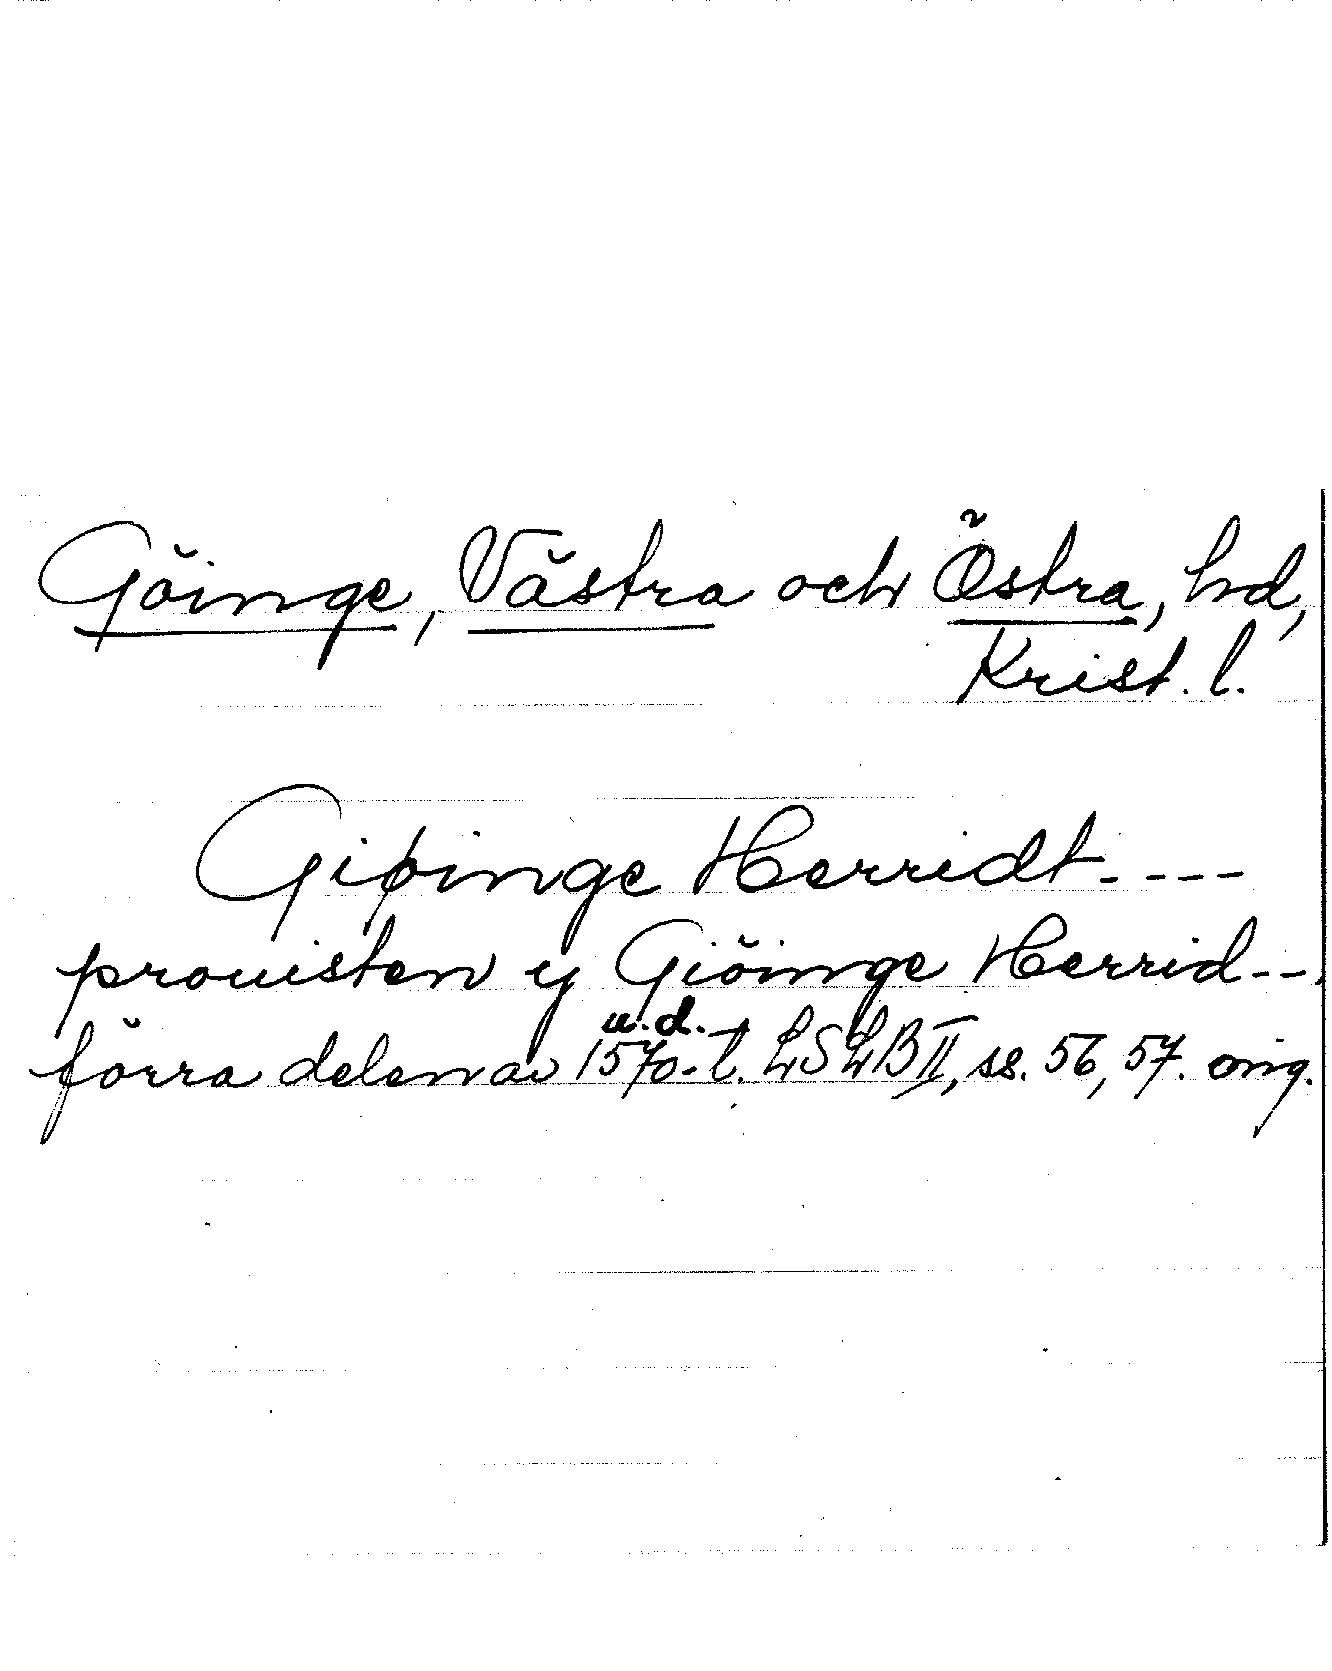 Göinge, Västra och Östra, hd,
Krist. l.
Giøinge Herridt ----
prouisten y Giöinge Herrid --.
u.d.
förra delen av 1570-t. LSLB II, ss. 56, 57. orig.